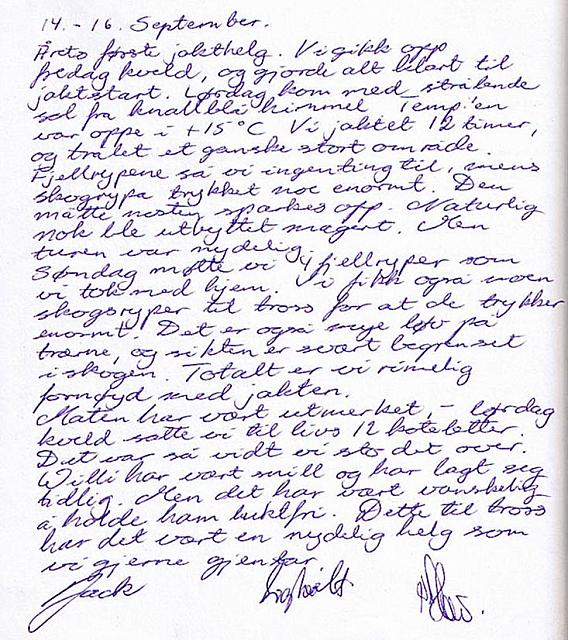 14. - 16. September.
Årets første jakthelg. Vi gikk opp
fredag kveld, og gjorde alt klart til
jaktstart. Lørdag kom med strålende
sol fra knallblå himmel Temp'en
var oppe i +15°C Vi jaktet 12 timer,
og trålet et ganske stort område.
Fjellrypene så vi ingenting til, mens
skogrypa trykket noe enormt. Den
måtte nesten sparkes opp. Naturlig
nok ble utbyttet magert. Men
turen var nydelig.
Søndag møtte vi 4 fjellryper som
vi tok med hjem. Vi fikk også noen
skogsryper til tross for at de trykker
enormt. Det er også mye løv på
trærne, og sikten er svært begrenset
i skogen. Totalt er vi rimelig
fornøyd med jakten.
Maten har vært utmerket, - lørdag
kveld satte vi til livs 12 koteletter.
Det var så vidt vi sto det over.
Willi har vært snill og har lagt seg
tidlig. Men det har vært vanskelig
å holde ham luktfri. Dette til tross
har det vært en nydelig helg som
vi gjerne gjentar
Jack